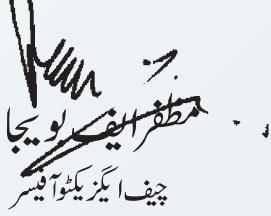 مظفر ایف ویجا
چیف ایگزیکٹو آفیسر